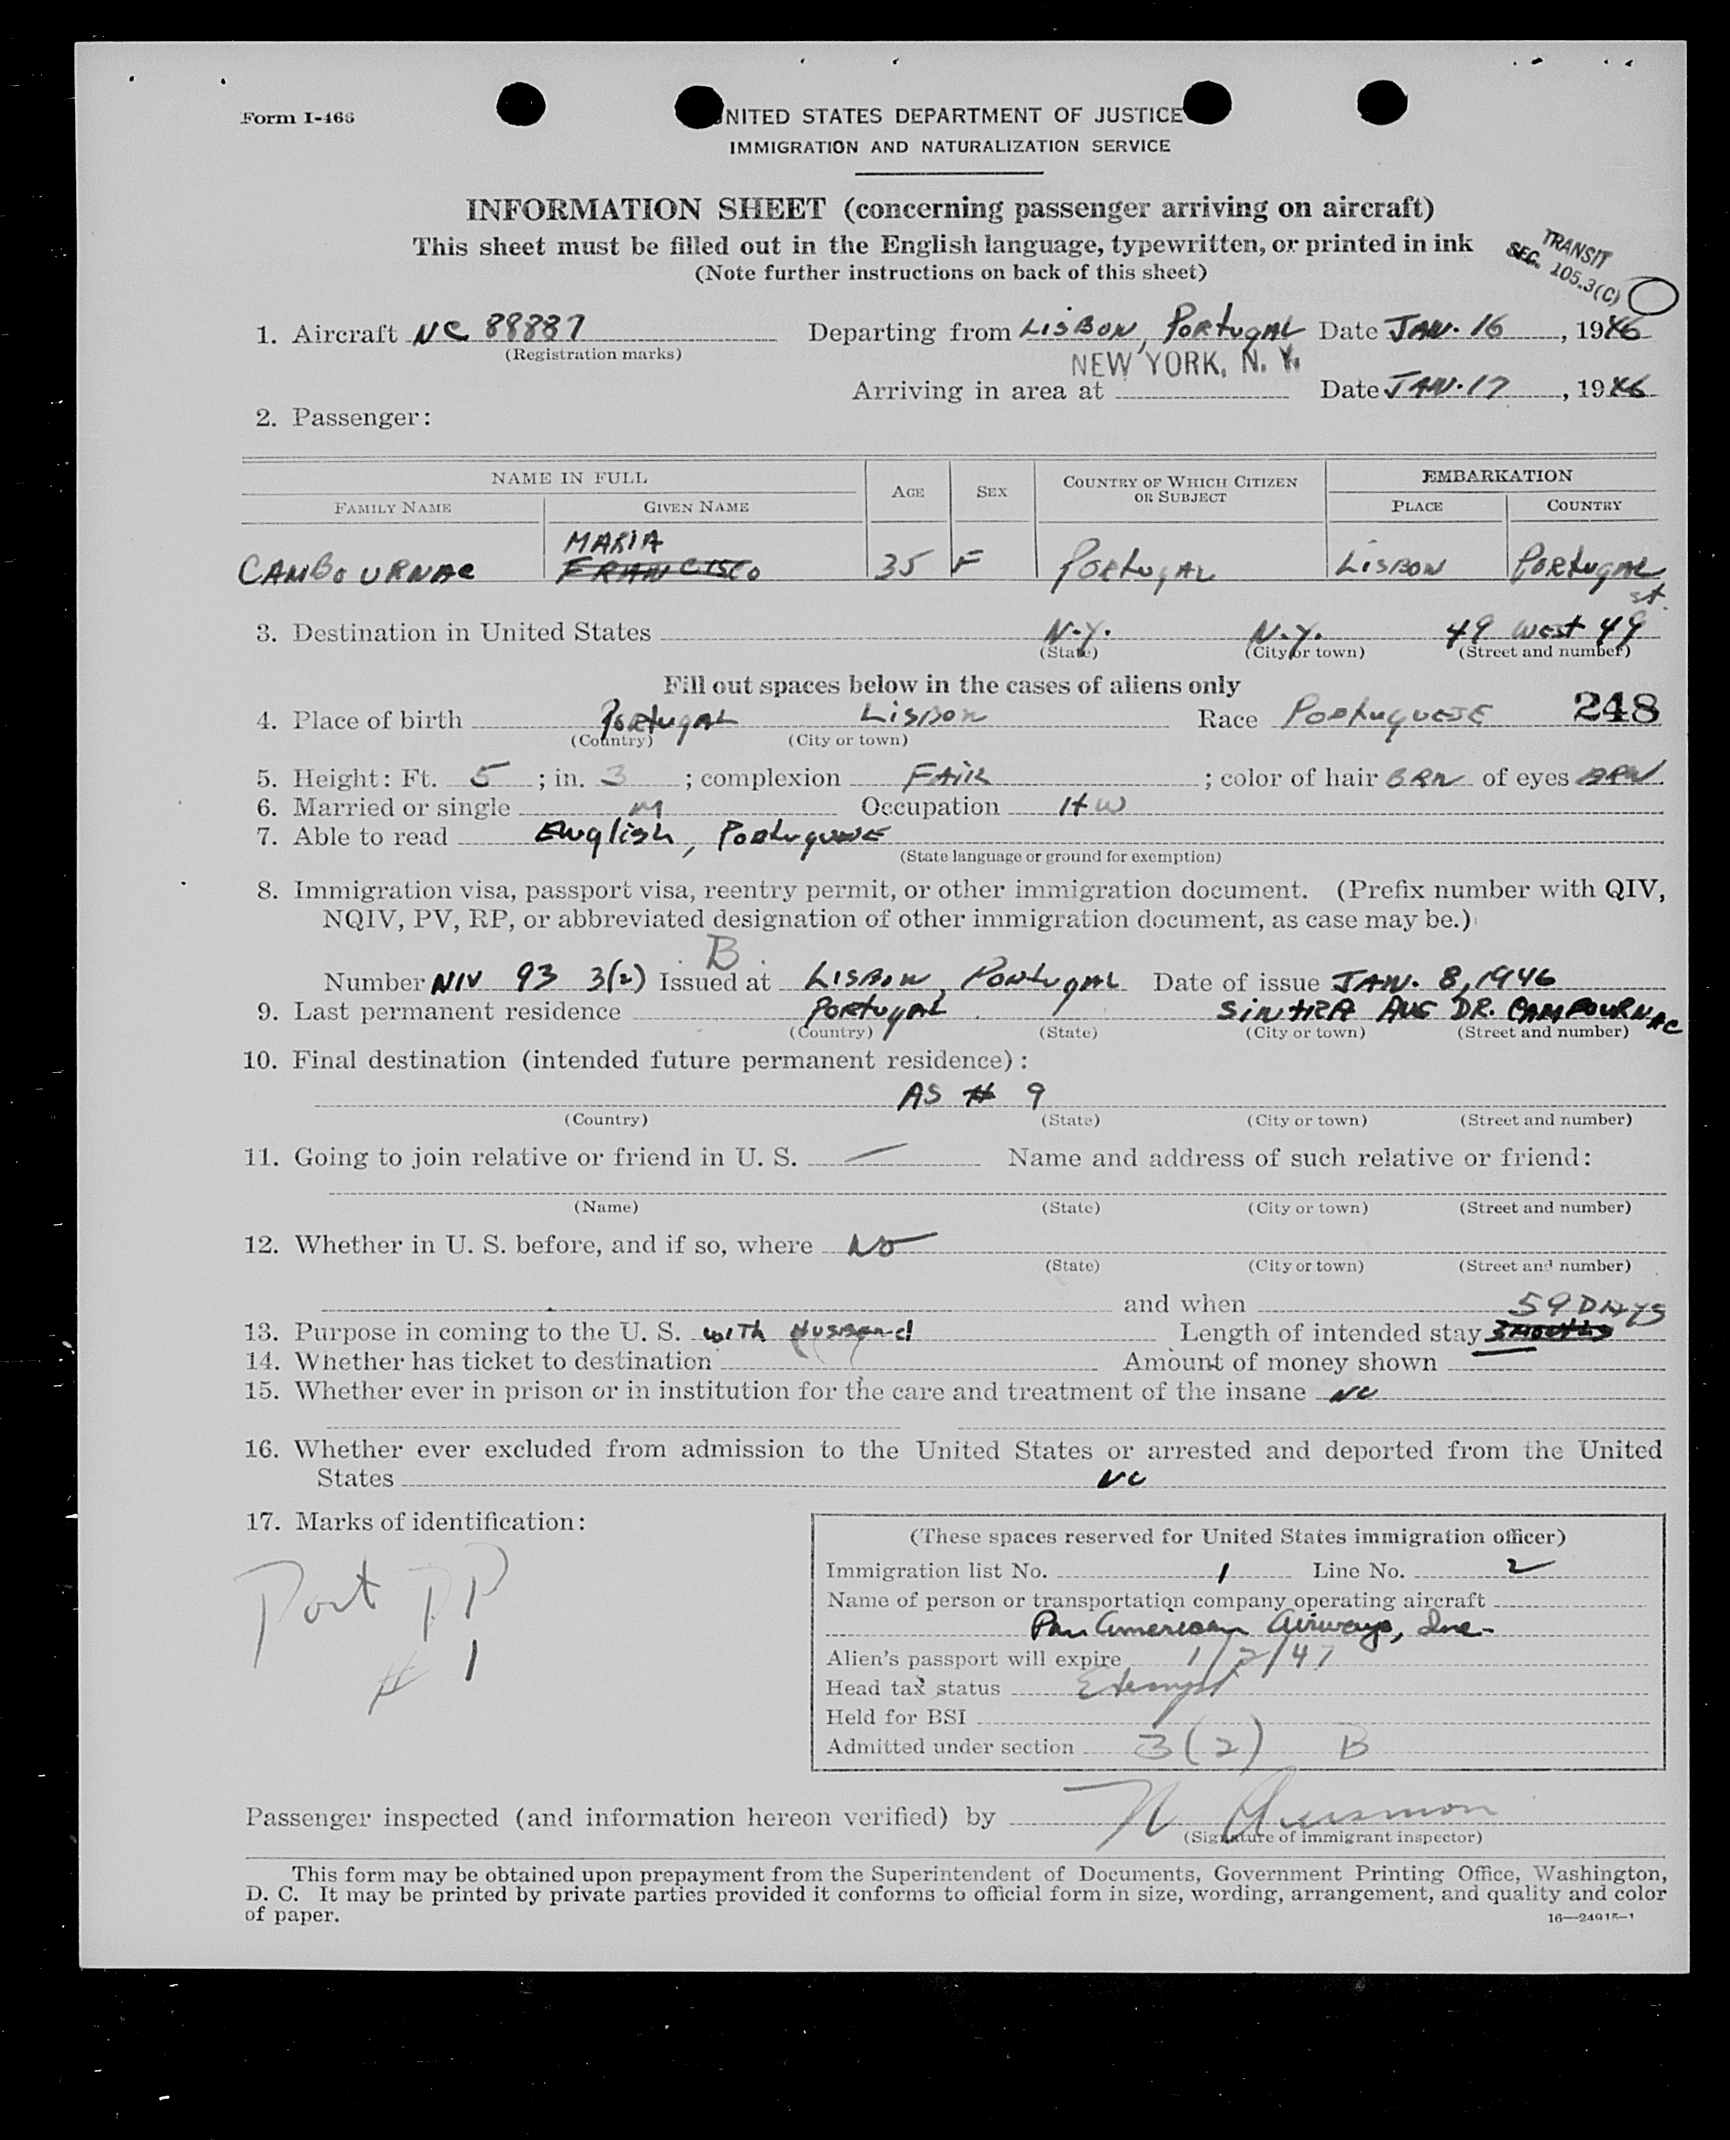 Form I-466
UNITED STATES DEPARTMENT OF JUSTICE
IMMIGRATION AND NATURALIZATION SERVICE
INFORMATION SHEET (concerning passenger arriving on aircraft)
This sheet must be filled out in the English language, typewritten, or printed in ink
(Note further instructions on back of this sheet)
TRANSIT
SEC. 105.3(C)
1. Aircraft NC 88887 Departing from LISBON, PORTUGAL Date JAN. 16, 1946
(Registration marks)
NEW YORK, N. Y.
Arriving in area at Date JAN. 17, 1946
2. Passenger:
NAME IN FULL AGE SEX COUNTRY OF WHICH CITIZEN OR SUBJECT EMBARKATION
FAMILY NAME GIVEN NAME PLACE COUNTRY
MARIA
CAMBOURNAC FRANCISCO 35 F PORTUGAL LISBON PORTUGAL
st.
3. Destination in United States N.Y. N.Y. 49 west 49
(State) (City or town) (Street and number)
Fill out spaces below in the cases of aliens only
4. Place of birth PORTUGAL LISBON Race PORTUGUESE 248
(Country) (City or town)
5. Height: Ft. 5; in. 3; complexion FAIR; color of hair BRN of eyes BRN
6. Married or single M Occupation HW
7. Able to read English, Portuguese
(State language or ground for exemption)
8. Immigration visa, passport visa, reentry permit, or other immigration document. (Prefix number with QIV,
NQIV, PV, RP, or abbreviated designation of other immigration document, as case may be.)
B
Number NIV 93 3(2) Issued at LISBON, PORTUGAL Date of issue JAN. 8, 1946
9. Last permanent residence PORTUGAL SINTRA AVE DR. CAMBOURNAC
(Country) (State) (City or town) (Street and number)
10. Final destination (intended future permanent residence):
AS # 9
(Country) (State) (City or town) (Street and number)
11. Going to join relative or friend in U. S. — Name and address of such relative or friend:
(Name) (State) (City or town) (Street and number)
12. Whether in U. S. before, and if so, where NO
(State) (City or town) (Street and number)
and when
59 DAYS
13. Purpose in coming to the U. S. with Husband Length of intended stay 3 months
14. Whether has ticket to destination Amount of money shown
15. Whether ever in prison or in institution for the care and treatment of the insane NO
16. Whether ever excluded from admission to the United States or arrested and deported from the United
States NO
17. Marks of identification:
Port PP
# 1
(These spaces reserved for United States immigration officer)
Immigration list No. 1 Line No. 2
Name of person or transportation company operating aircraft
Pan American Airways, Inc.
Alien's passport will expire 1/2/47
Head tax status Exempt
Held for BSI
Admitted under section 3(2) B
Passenger inspected (and information hereon verified) by
(Signature of immigrant inspector)
This form may be obtained upon prepayment from the Superintendent of Documents, Government Printing Office, Washington,
D. C. It may be printed by private parties provided it conforms to official form in size, wording, arrangement, and quality and color
of paper.
16—24915-1